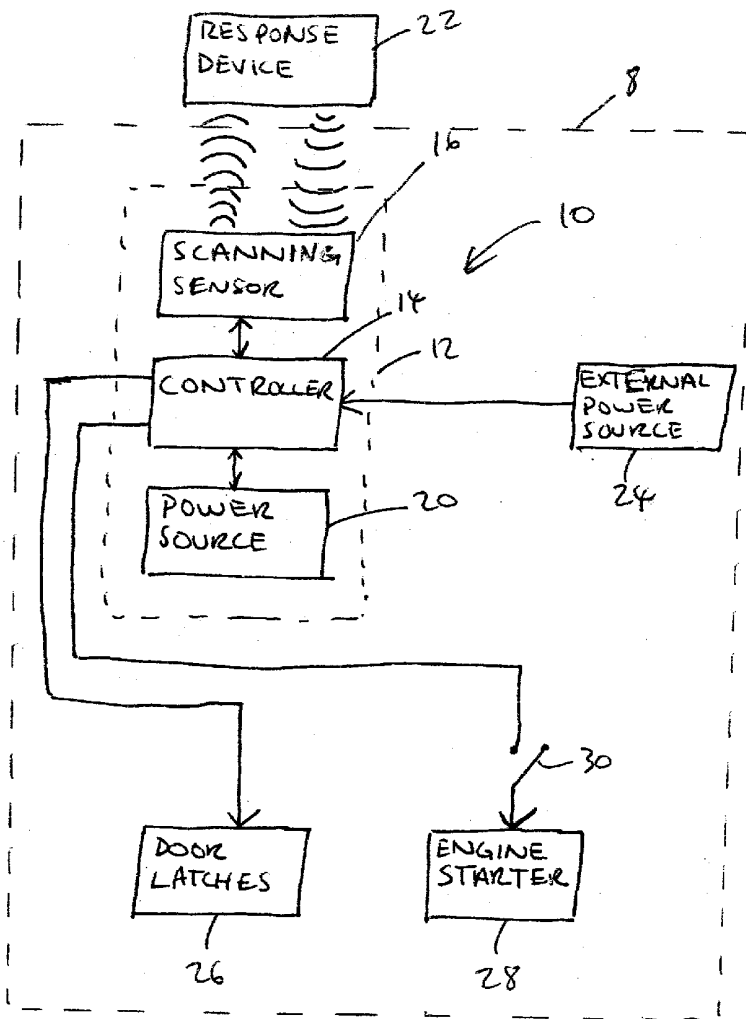 RESPONSE
DEVICE
22
8
16
10
SCANNING
SENSOR
14
12
CONTROLLER
EXTERNAL
POWER
SOURCE
24
POWER
SOURCE
20
30
DOOR
LATCHES
ENGINE
STARTER
26
28